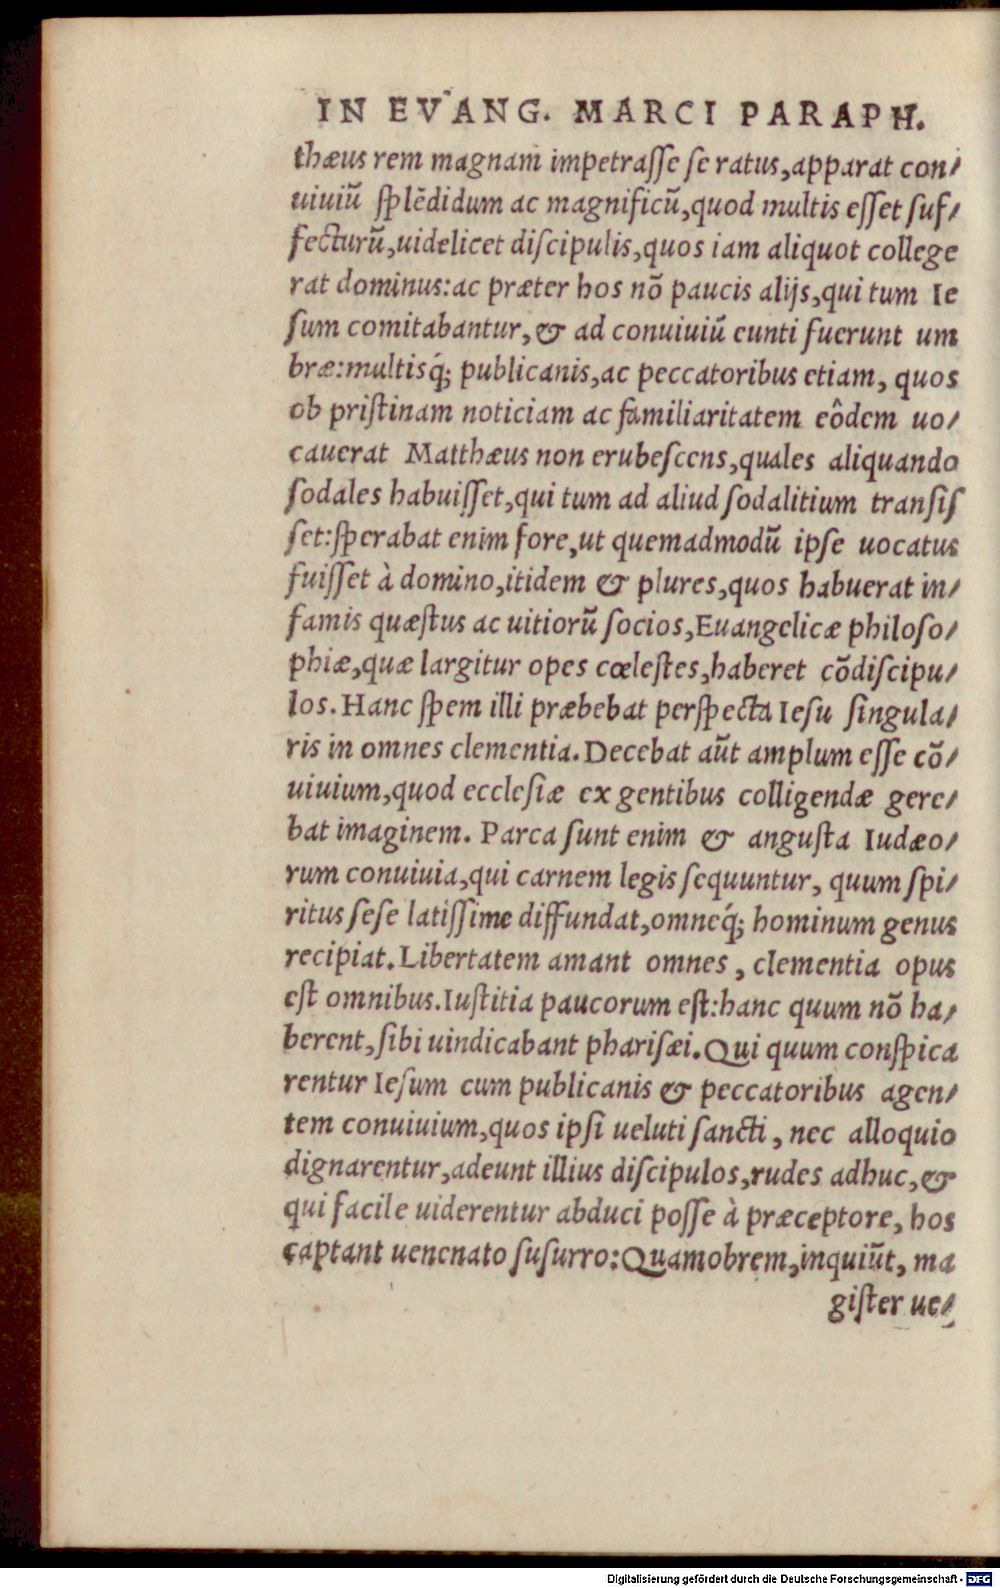 IN EVANG. MARCI PARAPH.
thæus rem magnam impetraſſe ſe ratus, apparat con⸗
uiuiũ ſplẽdidum ac magnificũ, quod multis eſſet ſuf⸗
fecturũ, uidelicet diſcipulis, quos iam aliquot college
rat dominus: ac præter hos nõ paucis alijs, qui tum Ie
ſum comitabantur, & ad conuiuiũ eunti fuerunt um
bræ: multisq́; publicanis, ac peccatoribus etiam, quos
ob priſtinam noticiam ac familiaritatem eôdem uo⸗
cauerat Matthæus non erubeſcens, quales aliquando
ſodales habuiſſet, qui tum ad aliud ſodalitium tranſiſ
ſet: ſperabat enim fore, ut quemadmodũ ipſe uocatus
fuiſſet à domino, itidem & plures, quos habuerat in⸗
famis quæſtus ac uitiorũ ſocios, Euangelicæ philoſo⸗
phiæ, quæ largitur opes cœleſtes, haberet cõdiſcipu⸗
los. Hanc ſpem illi præbebat perſpecta Ieſu ſingula⸗
ris in omnes clementia. Decebat aũt amplum eſſe cõ⸗
uiuium, quod eccleſiæ ex gentibus colligendæ gere⸗
bat imaginem. Parca ſunt enim & anguſta Iudæo⸗
rum conuiuia, qui carnem legis ſequuntur, quum ſpi⸗
ritus ſeſe latiſſime diffundat, omneq́; hominum genus
recipiat. Libertatem amant omnes, clementia opus
eſt omnibus. Iuſtitia paucorum eſt: hanc quum nõ ha⸗
berent, ſibi uindicabant phariſæi. Qui quum conſpica
rentur Ieſum cum publicanis & peccatoribus agen⸗
tem conuiuium, quos ipſi ueluti ſancti, nec alloquio
dignarentur, adeunt illius diſcipulos, rudes adhuc, &
qui facile uiderentur abduci poſſe à præceptore, hos
captant uenenato ſuſurro: Quamobrem, inquiũt, ma
giſter ue⸗
Digitalisierung gefördert durch die Deutsche Forschungsgemeinschaft - DFG